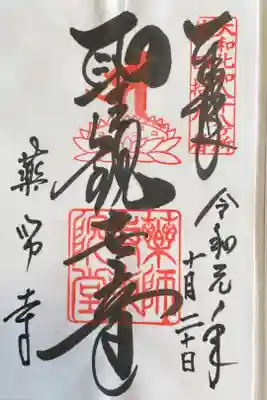 奉拝
令和元年
十月二十日
聖観世音
薬師
院堂
薬師寺